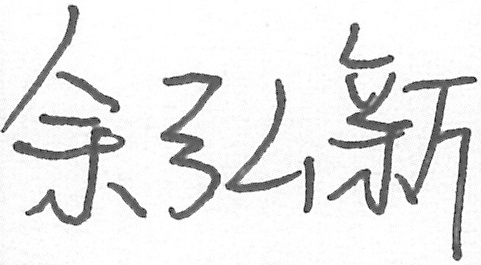 余弘新